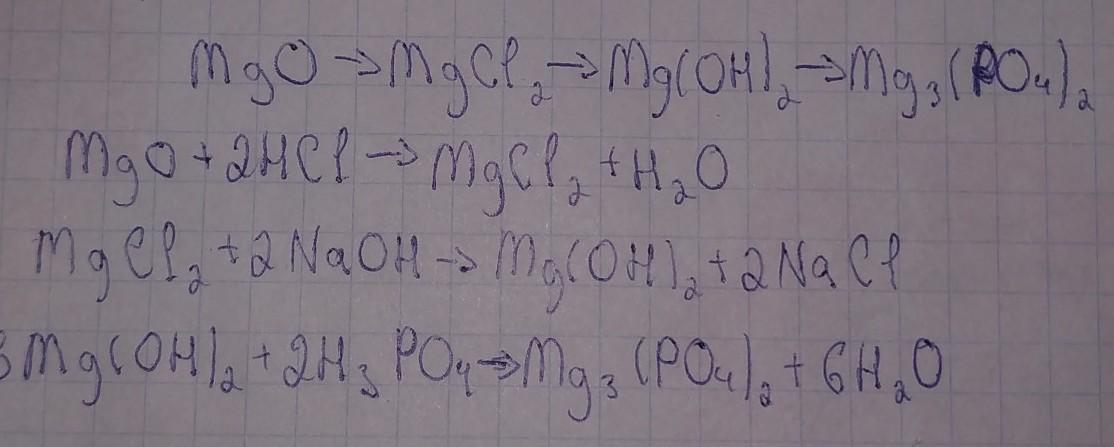 MgO → MgCl₂ → Mg(OH)₂ → Mg₃(PO₄)₂
MgO + 2HCl → MgCl₂ + H₂O
MgCl₂ + 2NaOH → Mg(OH)₂ + 2NaCl
3Mg(OH)₂ + 2H₃PO₄ → Mg₃(PO₄)₂ + 6H₂O